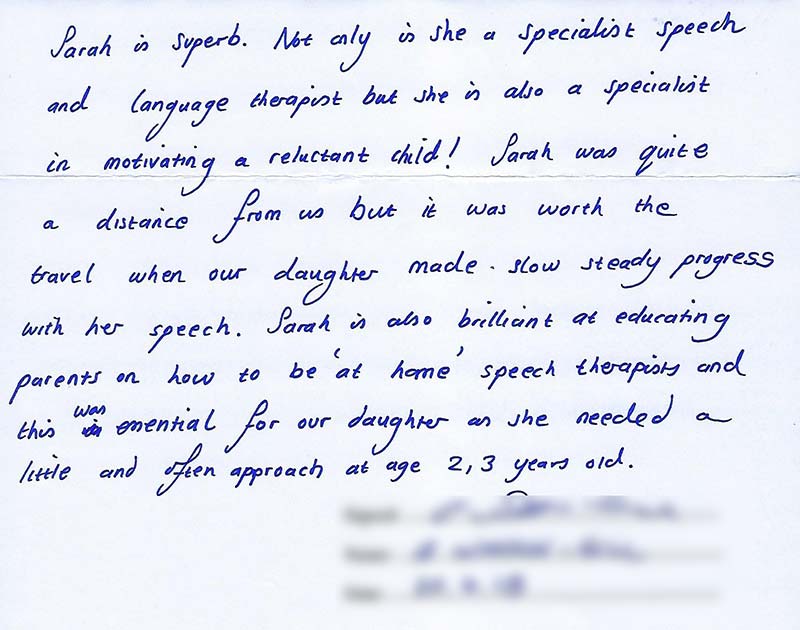 Sarah is superb. Not only is she a specialist speech
and language therapist but she is also a specialist
in motivating a reluctant child! Sarah was quite
a distance from us but it was worth the
travel when our daughter made slow steady progress
with her speech. Sarah is also brilliant at educating
parents on how to be 'at home' speech therapists and
this was essential for our daughter as she needed a
little and often approach at age 2,3 years old.